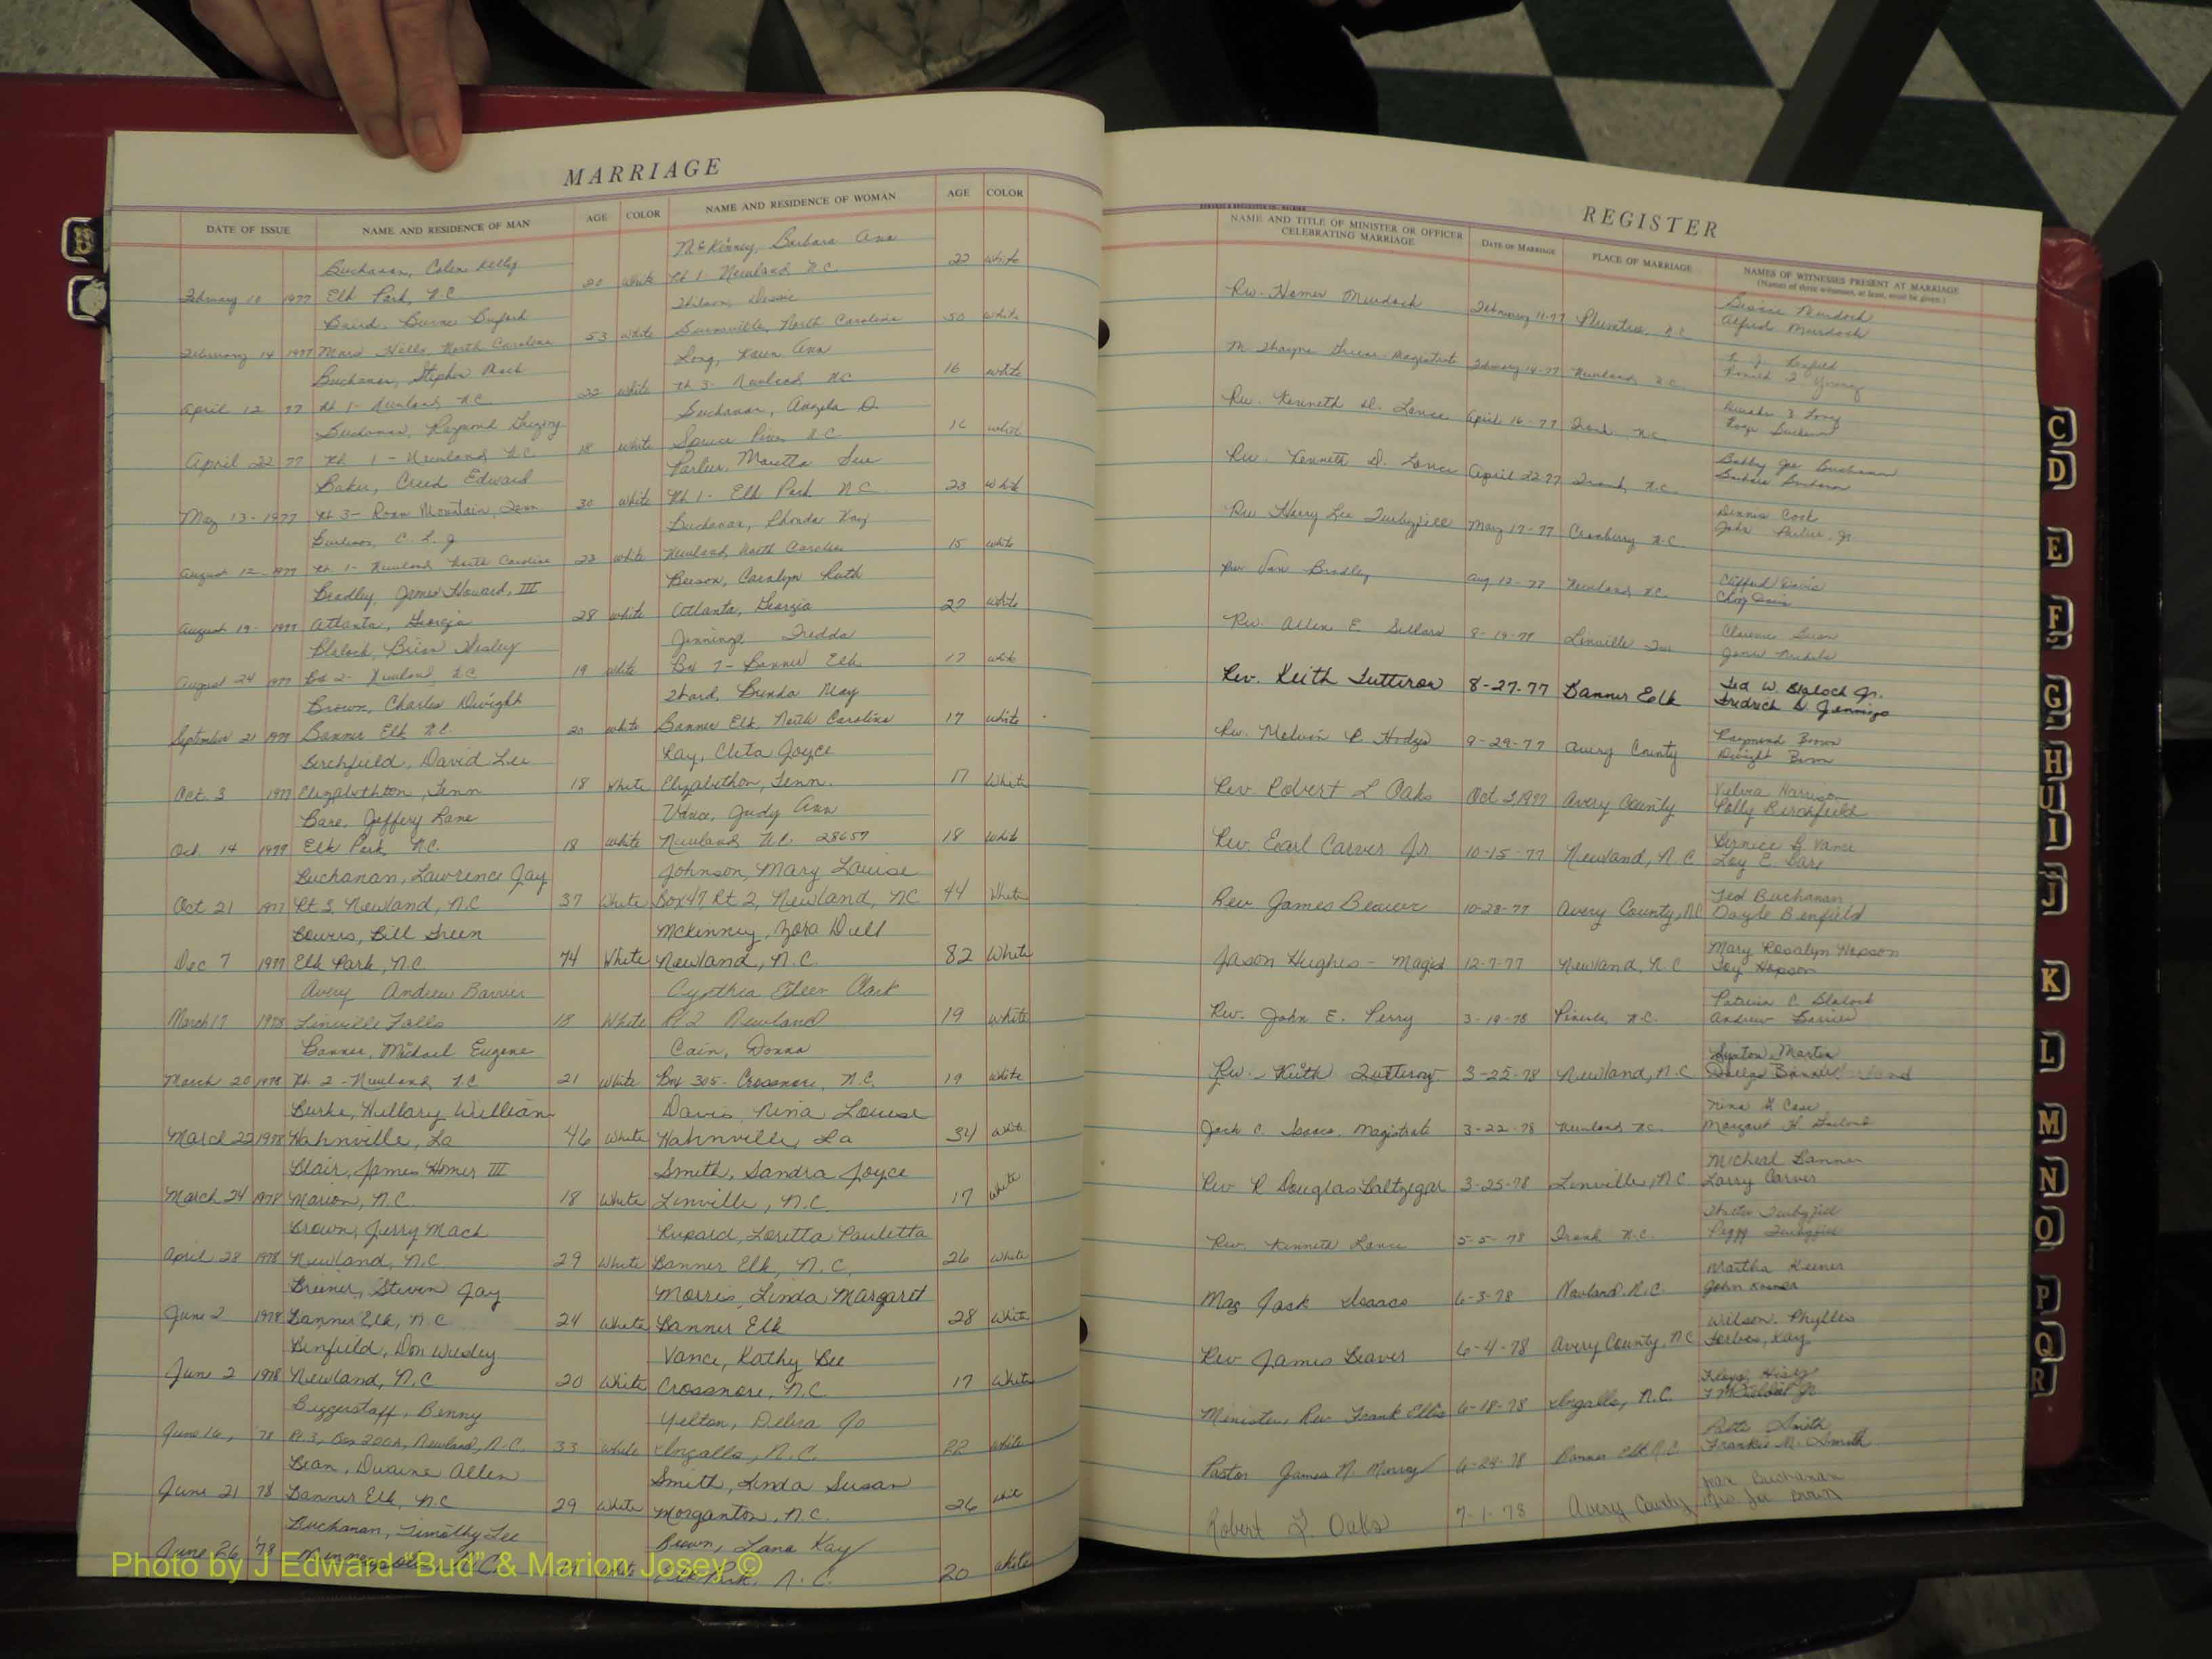 MARRIAGE
DATE OF ISSUE NAME AND RESIDENCE OF MAN AGE COLOR NAME AND RESIDENCE OF WOMAN AGE COLOR
Buchanan, Colen Kelly McKinney, Barbara Ann
February 10 1977 Elk Park, N.C. 20 White Rt 1- Newland N.C. 22 White
Baird, Burne Buford Wilson, Dessie
February 14 1977 Mars Hills, North Carolina 53 White Burnsville, North Carolina 50 White
Buchanan, Stephen Mack Long, Karen Ann
April 12 77 Rt 1- Newland N.C. 22 White Rt 3- Newland NC 16 White
Buchanan, Raymond Gregory Buchanan, Angela D.
April 22 77 Rt 1- Newland, N.C. 18 White Spruce Pine, N.C. 16 White
Baker, Creed Edward Parlier, Maretta Sue
May 13- 1977 Rt 3- Roan Mountain, Tenn 30 White Rt 1- Elk Park N.C. 23 White
Burleson, C. L. Jr Buchanan, Rhonda Kay
August 12- 1977 Rt 1- Newland North Carolina 23 White Newland, North Carolina 15 White
Bradley, James Howard, III Beeson, Carolyn Ruth
August 19- 1977 Atlanta, Georgia 28 White Atlanta, Georgia 27 White
Blalock, Brian Wesley Jennings Fredda
August 24 1977 Box 2- Newland, N.C. 19 White Box 7- Banner Elk 17 White
Brown, Charles Dwight Ward, Brenda May
September 21 1977 Banner Elk N.C. 20 White Banner Elk, North Carolina 17 White
Birchfield, David Lee Ray, Cleta Joyce
Oct. 3 1977 Elizabethton, Tenn 18 White Elizabethon, Tenn. 17 White
Bare, Jeffery Lane Vance, Judy Ann
Oct. 14 1977 Elk Park, N.C. 18 White Newland, N.C. 28657 18 White
Buchanan, Lawrence Jay Johnson, Mary Louise
Oct 21 1977 Rt 3, Newland, N.C 37 White Box 47 Rt 2, Newland, NC 44 White
Bowers, Bill Green McKinney, Zora Dell
Dec 7 1977 Elk Park, N.C. 74 White Newland, N.C. 82 White
Avery Andrew Barrier Cynthia Eileen Clark
March 17 1978 Linville Falls 18 White Rt 2 Newland 19 White
Banner, Michael Eugene Cain, Donna
March 20 1978 Rt. 2 - Newland, N.C 21 White Box 305- Crossnore, N.C. 19 White
Burke, Hillary William Davis Nina Louise
March 22 1978 Hahnville, La 46 White Hahnville, La 34 White
Blair, James Homer III Smith, Sandra Joyce
March 24 1978 Marion, N.C. 18 White Linville, N.C. 17 White
Brown, Jerry Mack Rupard, Loretta Pauletta
April 28 1978 Newland, N.C. 29 White Banner Elk, N.C. 26 White
Breiner, Steven Jay Morris, Linda Margaret
June 2 1978 Banner Elk, N.C. 24 White Banner Elk 28 White
Benfield, Don Wesley Vance, Kathy Lee
June 2 1978 Newland, N.C 20 White Crossnore, N.C. 17 White
Biggerstaff, Benny Yelton, Debra Jo
June 16, 78 Rt.3, Box 200A, Newland, N.C. 33 White Ingalls, N.C. 22 White
Bean, Duaine Allen Smith, Linda Susan
June 21 78 Banner Elk, N.C 29 White Morganton, N.C. 26 White
Buchanan, Timothy Lee Brown, Lana Kay
June 26 '78 N.C. White Elk Park, N.C. 20 White
REGISTER
NAME AND TITLE OF MINISTER OR OFFICER CELEBRATING MARRIAGE DATE OF MARRIAGE PLACE OF MARRIAGE NAMES OF WITNESSES PRESENT AT MARRIAGE
(Names of three witnesses, at least, must be given.)
Rev. Homer Murdock February 11-77 Plumtree, N.C. Bessie Murdock
Alfred Murdock
Magistrate February 14-77 Newland, N.C.
Ronald Young
Rev. Kenneth D. Lance April 16-77 Frank, N.C.
Rev. Kenneth D. Lance April 22 77 Frank, N.C. Bobby Joe Buchanan
Barbara Buchanan
Rev Harry Lee Turbyfill May 17-77 Cranberry N.C. Dennis Cook
John Parlier, Jr
Rev Van Bradley Aug 12-77 Newland, N.C. Clifford Davis
Rev. Allen E. 8-19-78 Linville
Rev. Keith Tutterow 8-27-77 Banner Eolk Ted W. Blalock Jr.
Fredrick D. Jennings
Rev. Melvin R. Hodges 9-29-77 Avery County Raymond Brown
Dwight Brown
Rev. Robert L Oaks Oct 3, 1977 Avery County Velvia Harrison
Polly Birchfield
Rev. Earl Carver Jr 10-15-77 Newland, N.C Bernice B Vance
Loy E. Bare
Rev James Beaver 10-28-77 Avery County, NC Ted Buchanan
Doyle Benfield
Jason Hughes - Magist 12-7-77 Newland, N.C Mary Rosalyn Hopson
Toy Hopson
Rev. John E. Perry 3-19-78 Pineola, N.C. Patricia C. Blalock
Andrew Barrier
Rev. Keith Tutterow 3-25-78 Newland, N.C Lynton Martin
Jack C. Isaacs, Magistrate 3-22-78 Newland N.C. Nina G Case
Margaret H.
Rev R Douglas Saltzegar 3-25-78 Linville, N.C Micheal Banner
Larry Carver
Rev. Kenneth Lance 5-5-78 Frank N.C. Walter Turbyfill
Peggy Turbyfill
Mag Jack Isaacs 6-3-78 Newland, N.C. Martha Keener
John Keener
Rev James Beaver 6-4-78 Avery County, NC Wilson, Phyllis
Forbes, Kay
Minister, Rev Frank Ellis 6-18-78 Ingalls, N.C.
Pastor James N. Murray 6-24-78 Banner Elk N.C. Smith
Frankie M. Smith
Robert L. Oaks 7-1-78 Avery County Buchanan
Mrs. Joe Brown
C
D
E
F
G
H
I
J
K
L
M
N
O
P
Q
R
Photo by J Edward “Bud” & Marion Josey ©